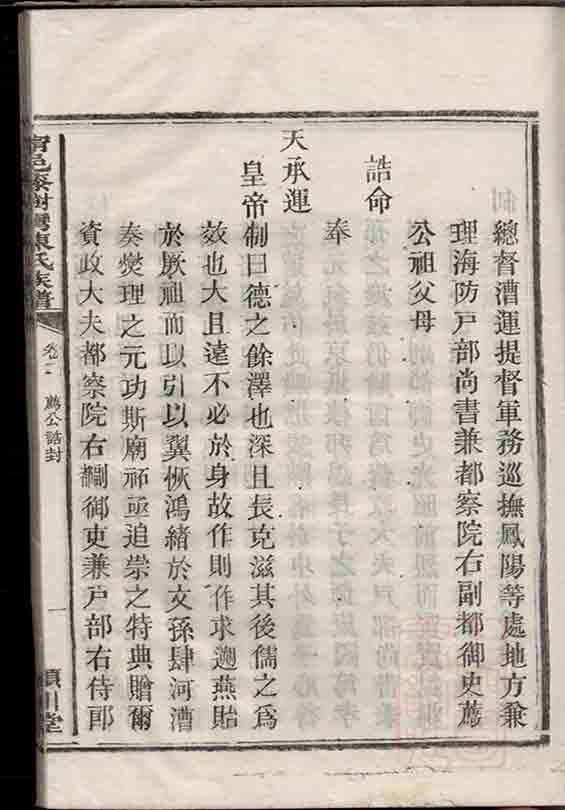 總督漕運提督軍務巡撫鳳陽等處地方兼
理海防戶部尚書兼都察院右副都御史薦
公祖父母
誥命
奉
天承運
皇帝制曰德之餘澤也深且長克滋其後儒之爲
效也大且遠不必於身故作則作求遡燕貽
於厥祖而以引以翼恢鴻緒於文孫肆河漕
奏燮理之元功斯廟祏亟追崇之特典贈爾
資政大夫都察院右副御吏兼戶部右侍郎
甯邑 樹灣陳氏族譜
卷二 薦公誥封
一
潁川堂